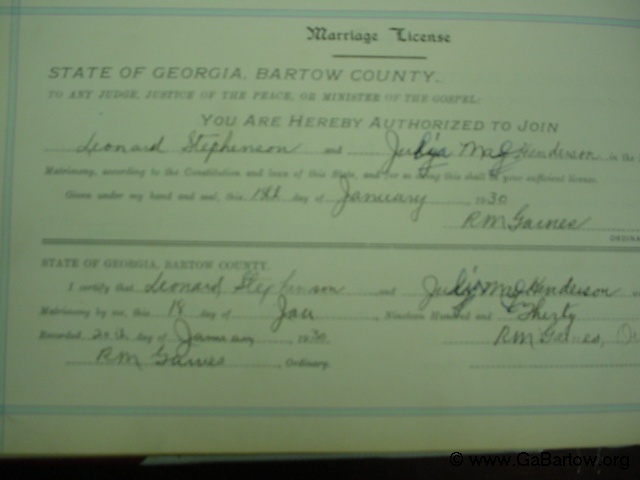 Marriage License
STATE OF GEORGIA, BARTOW COUNTY.
TO ANY JUDGE, JUSTICE OF THE PEACE, OR MINISTER OF THE GOSPEL:
YOU ARE HEREBY AUTHORIZED TO JOIN
Leonard Stephenson and Julia Mag Henderson in the
Matrimony, according to the Constitution and laws of this State, and for so doing this shall be your sufficient license.
Given under my hand and seal, this 18th day of January 1930
RM Gaines
ORDINA
STATE OF GEORGIA, BARTOW COUNTY.
I certify that Leonard Stephenson and Julia Mag Henderson
Matrimony by me, this 18 day of Jan , Nineteen Hundred and Therty
Recorded, 20th day of January , 1930. RM Gaines,
RM Gaines , Ordinary.
© www.GaBartow.org